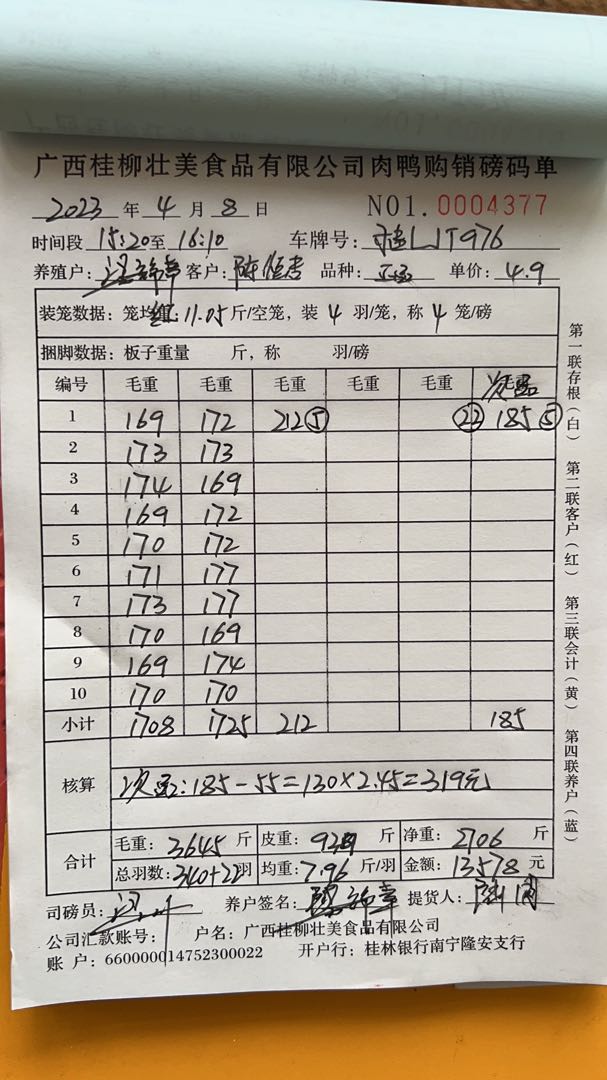 广西桂柳壮美食品有限公司肉鸭购销磅码单
2023 年 4 月 8 日 NO1. 0004377
时间段 15:20 至 16:10 车牌号: LJT976
养殖户: 客户: 陈 品种: 单价: 4.9
装笼数据: 笼均重: 11.05 斤/空笼, 装 4 羽/笼, 称 4 笼/磅
捆脚数据: 板子重量 斤, 称 羽/磅
编号 毛重 毛重 毛重 毛重 毛重 次品
1 169 172 212 ⑤ ㉒ 185 ⑤
2 173 173
3 174 169
4 169 172
5 170 172
6 171 177
7 173 177
8 170 169
9 169 174
10 170 170
小计 1708 1725 212 185
核算 次品: 185-55=130×2.45=319元
合计 毛重: 3645 斤 皮重: 939 斤 净重: 2706 斤
总羽数: 340+22 羽 均重: 7.96 斤/羽 金额: 13578 元
司磅员: 养户签名: 提货人:
公司汇款账号: 户名: 广西桂柳壮美食品有限公司
账 户: 660000014752300022 开户行: 桂林银行南宁隆安支行
第一联存根(白) 第二联客户(红) 第三联会计(黄) 第四联养户(蓝)